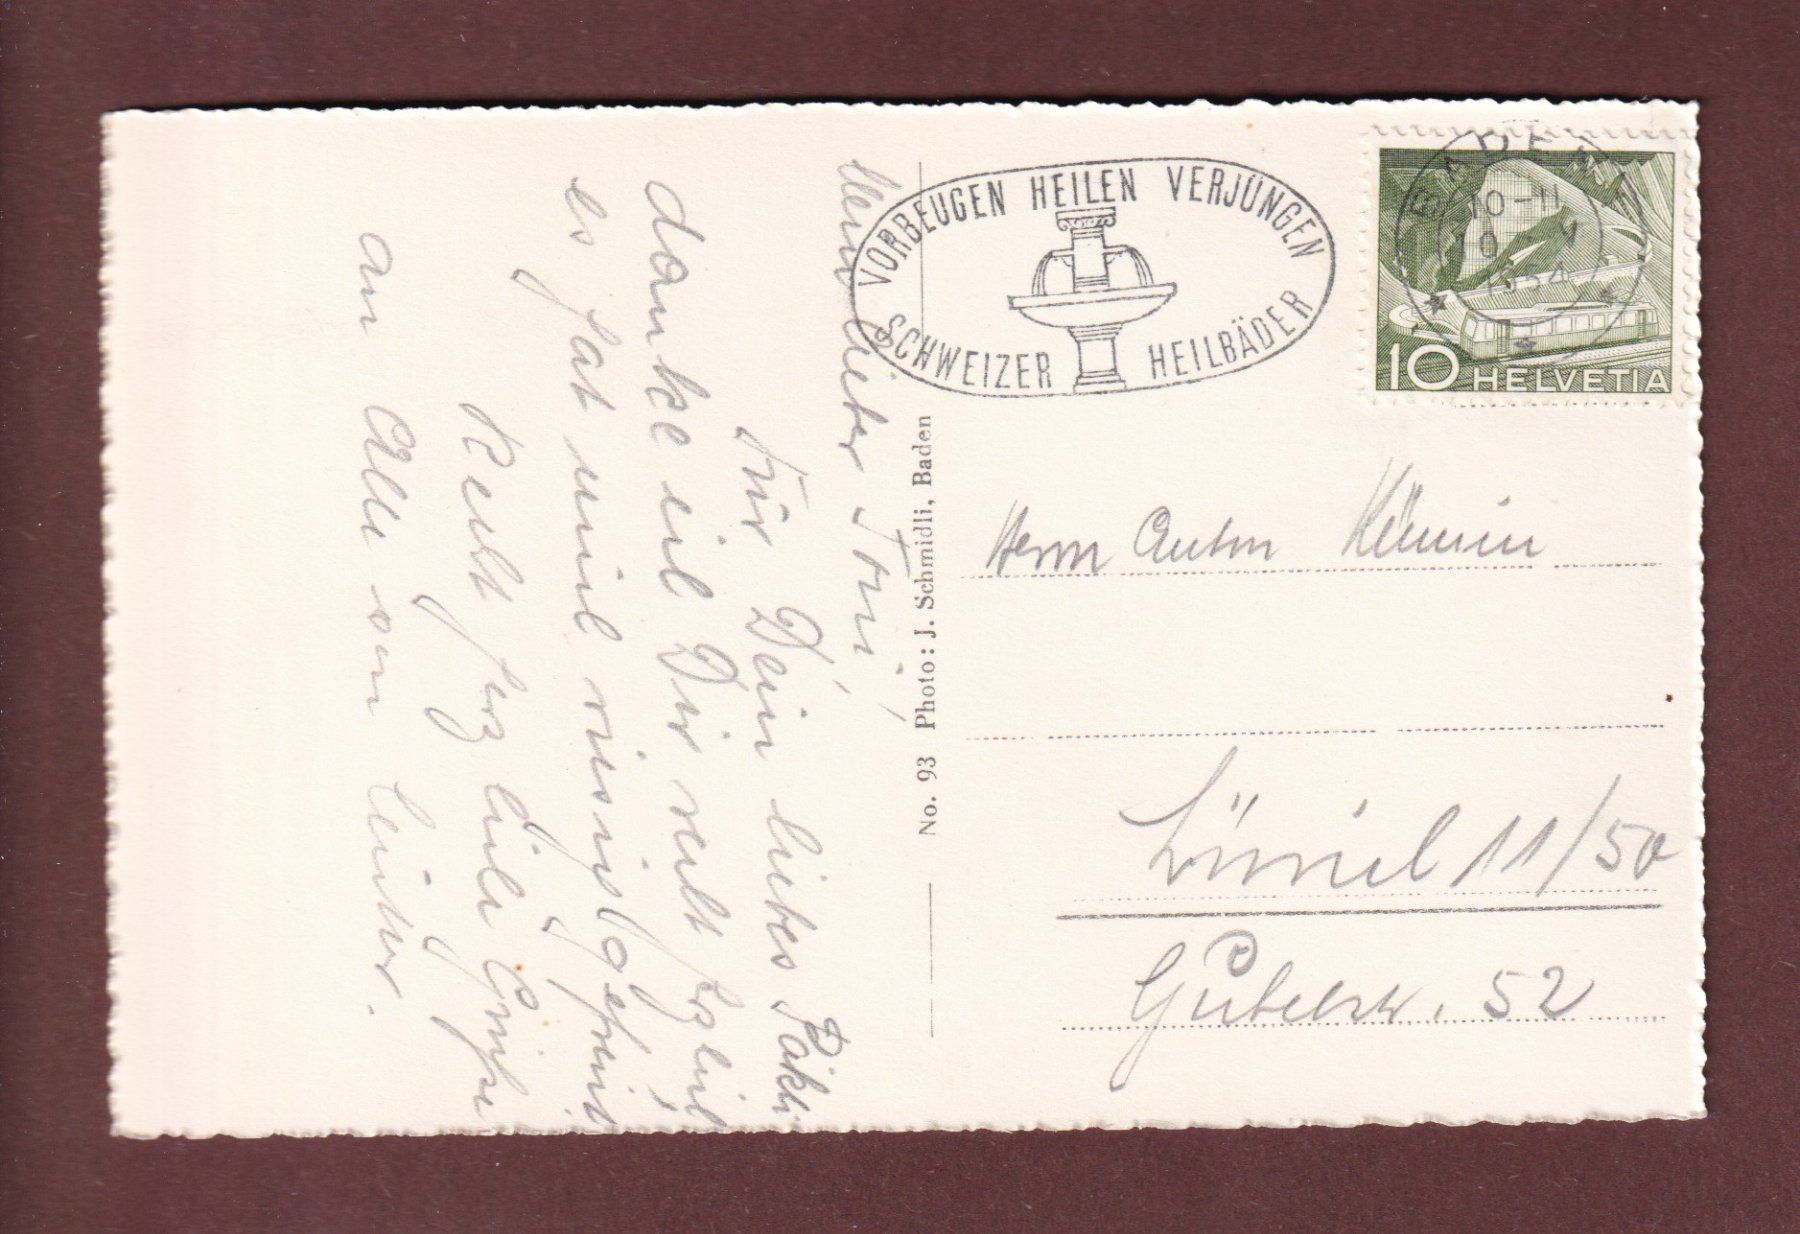 Mein lieber Toni!
Für Dein liebes Päkli
danke ich Dir recht herzlich,
es hat mich riesig gefreut
Recht herzliche Grüsse
an Alle von
VORBEUGEN HEILEN VERJÜNGEN
SCHWEIZER HEILBÄDER
BADEN
10-11
1954
10 HELVETIA
No. 93 Photo: J. Schmidli, Baden
Herrn Anton
Zürich 11/50
Gubelstr. 52